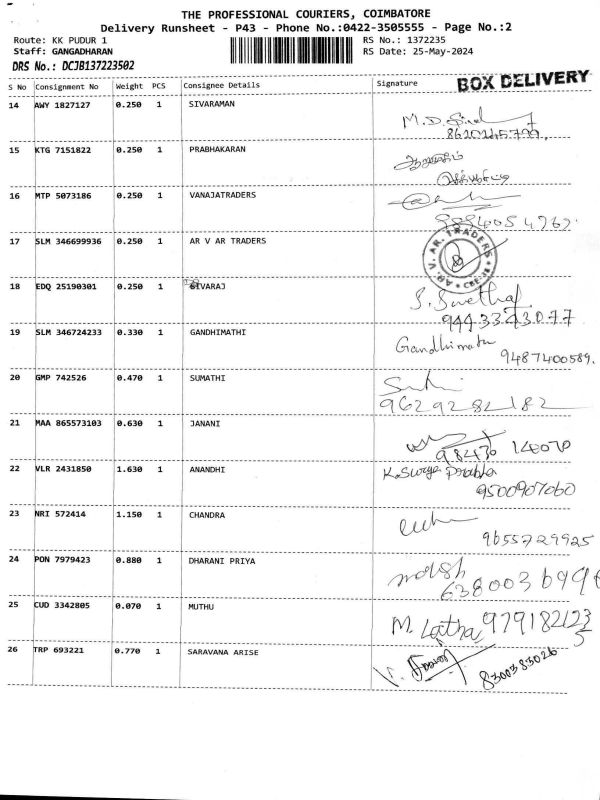 THE PROFESSIONAL COURIERS, COIMBATORE
Delivery Runsheet - P43 - Phone No.:0422-3505555 - Page No.:2
Route: KK PUDUR 1 RS No.: 1372235
Staff: GANGADHARAN RS Date: 25-May-2024
DRS No.: DCJB137223502
S No Consignment No Weight PCS Consignee Details Signature BOX DELIVERY
14 AWY 1827127 0.250 1 SIVARAMAN
M.D.
15 KTG 7151822 0.250 1 PRABHAKARAN
16 MTP 5073186 0.250 1 VANAJATRADERS
17 SLM 346699936 0.250 1 AR V AR TRADERS
AR. V. AR. TRADERS
18 EDQ 25190301 0.250 1 SIVARAJ
9443343077
19 SLM 346724233 0.330 1 GANDHIMATHI
Gandhimathi
9487400589.
20 GMP 742526 0.470 1 SUMATHI
9629282182
21 MAA 865573103 0.630 1 JANANI
98430 14070
22 VLR 2431850 1.630 1 ANANDHI
K. Surya Prabha
9500907060
23 NRI 572414 1.150 1 CHANDRA
9655729925
24 PON 7979423 0.880 1 DHARANI PRIYA
25 CUD 3342805 0.070 1 MUTHU
M. Latha 979182123
5
26 TRP 693221 0.770 1 SARAVANA ARISE
8300383026